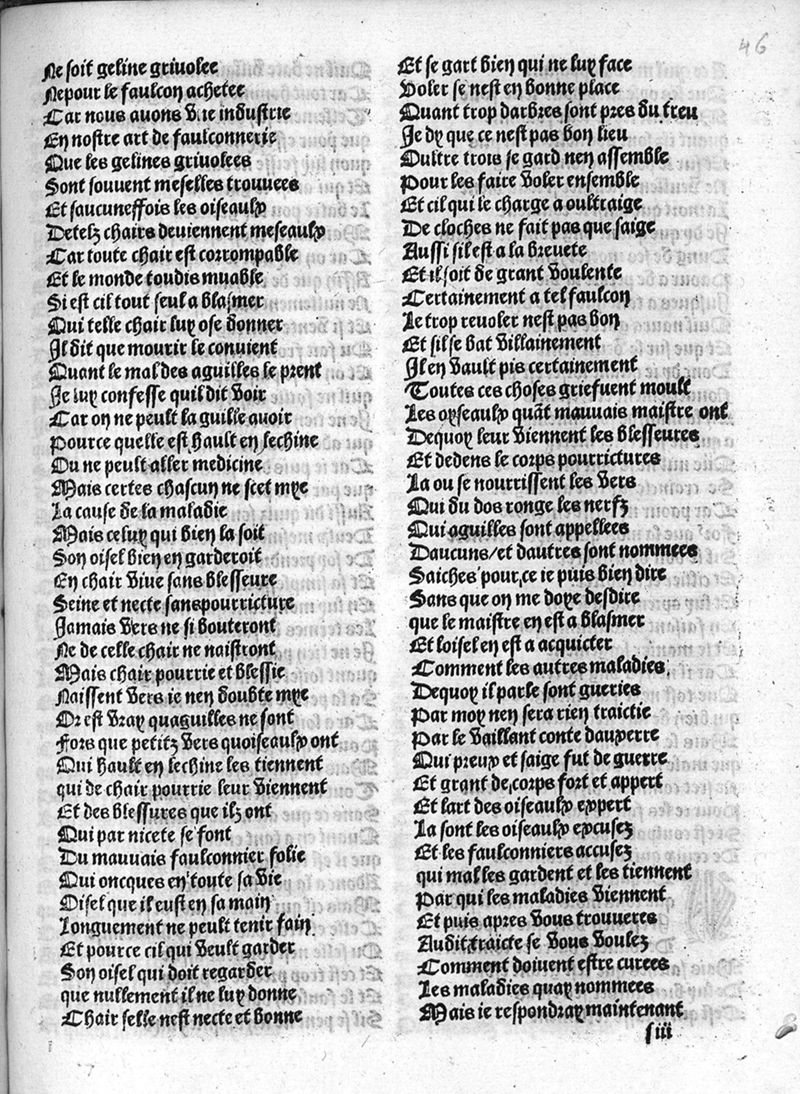 46
Ne soit geline grivolee
Nepour le faulcon achetee
Car nous avons vne industrie
En nostre art de faulconnerie
Que les gelines grivolees
Sont souuent meselles trouuees
Et saucuneffois les oiseaulx
Detelz chairs deuiennent meseaulx
Car toute chair est corrompable
Et le monde toudis muable
Si est cil tout seul a blasmer
Qui telle chair luy ose donner
Il dit que mourir le conuient
Quant le mal des aguilles le prent
Je luy confesse quil dit voir
Car on ne peult laguille auoir
Pource quelle est hault en lechine
Ou ne peult aller medicine
Mais certes chascun ne scet mye
La cause de la maladie
Mais celuy qui bien la soit
Son oisel bien en garderoit
En chair viue sans blesseure
Seine et necte sanspourricture
Jamais vers ne si bouteront
Ne de celle chair ne naistront
Mais chair pourrie et blessie
Naissent vers ie nen doubte mye
Or est vray quaguilles ne sont
Fors que petitz vers quoiseaulx ont
Qui hault en lechine les tiennent
qui de chair pourrie leur viennent
Et des blessures que ilz ont
Qui par nicete se font
Du mauuais faulconnier folie
Qui oncques en toute sa vie
Oisel que il eust en sa main
Longuement ne peult tenir sain
Et pource cil qui veult garder
Son oisel qui doit regarder
que nullement il ne luy donne
Chair selle nest necte et bonne
Et se gart bien qui ne luy face
Voler se nest en bonne place
Quant trop darbres sont pres du treu
Je dy que ce nest pas bon lieu
Oultre trois se gard nen assemble
Pour les faire voler ensemble
Et cil qui le charge a oultraige
De cloches ne fait pas que saige
Aussi sil est a la breuete
Et il soit de grant voulente
Certainement a tel faulcon
Le trop reuoler nest pas bon
Et sil se bat villainement
Il en vault pis certainement
Toutes ces choses griefuent moult
Les oyseaulx quãt mauuais maistre ont
Dequoy leur viennent les blesseures
Et dedens le corps pourrictures
La ou se nourrissent les vers
Qui du dos ronge les nerfz
Qui aguilles sont appellees
Daucuns/et dautres sont nommees
Saiches pour ce ie puis bien dire
Sans que on me doye desdire
que le maistre en est a blasmer
Et loisel en est a acquicter
Comment les autres maladies
Dequoy il parle sont gueries
Par moy nen sera rien traictie
Par le vaillant conte dauxerre
Qui preux et saige fut de guerre
Et grant de corps fort et appert
Et lart des oiseaulx expert
La sont les oiseaulx excusez
Et les faulconniers accusez
qui mal les gardent et les tiennent
Par qui les maladies viennent
Et puis apres vous trouueres
Audit traicte se vous voulez
Comment doiuent estre curees
Les maladies quay nommees
Mais ie respondray maintenant
s iii